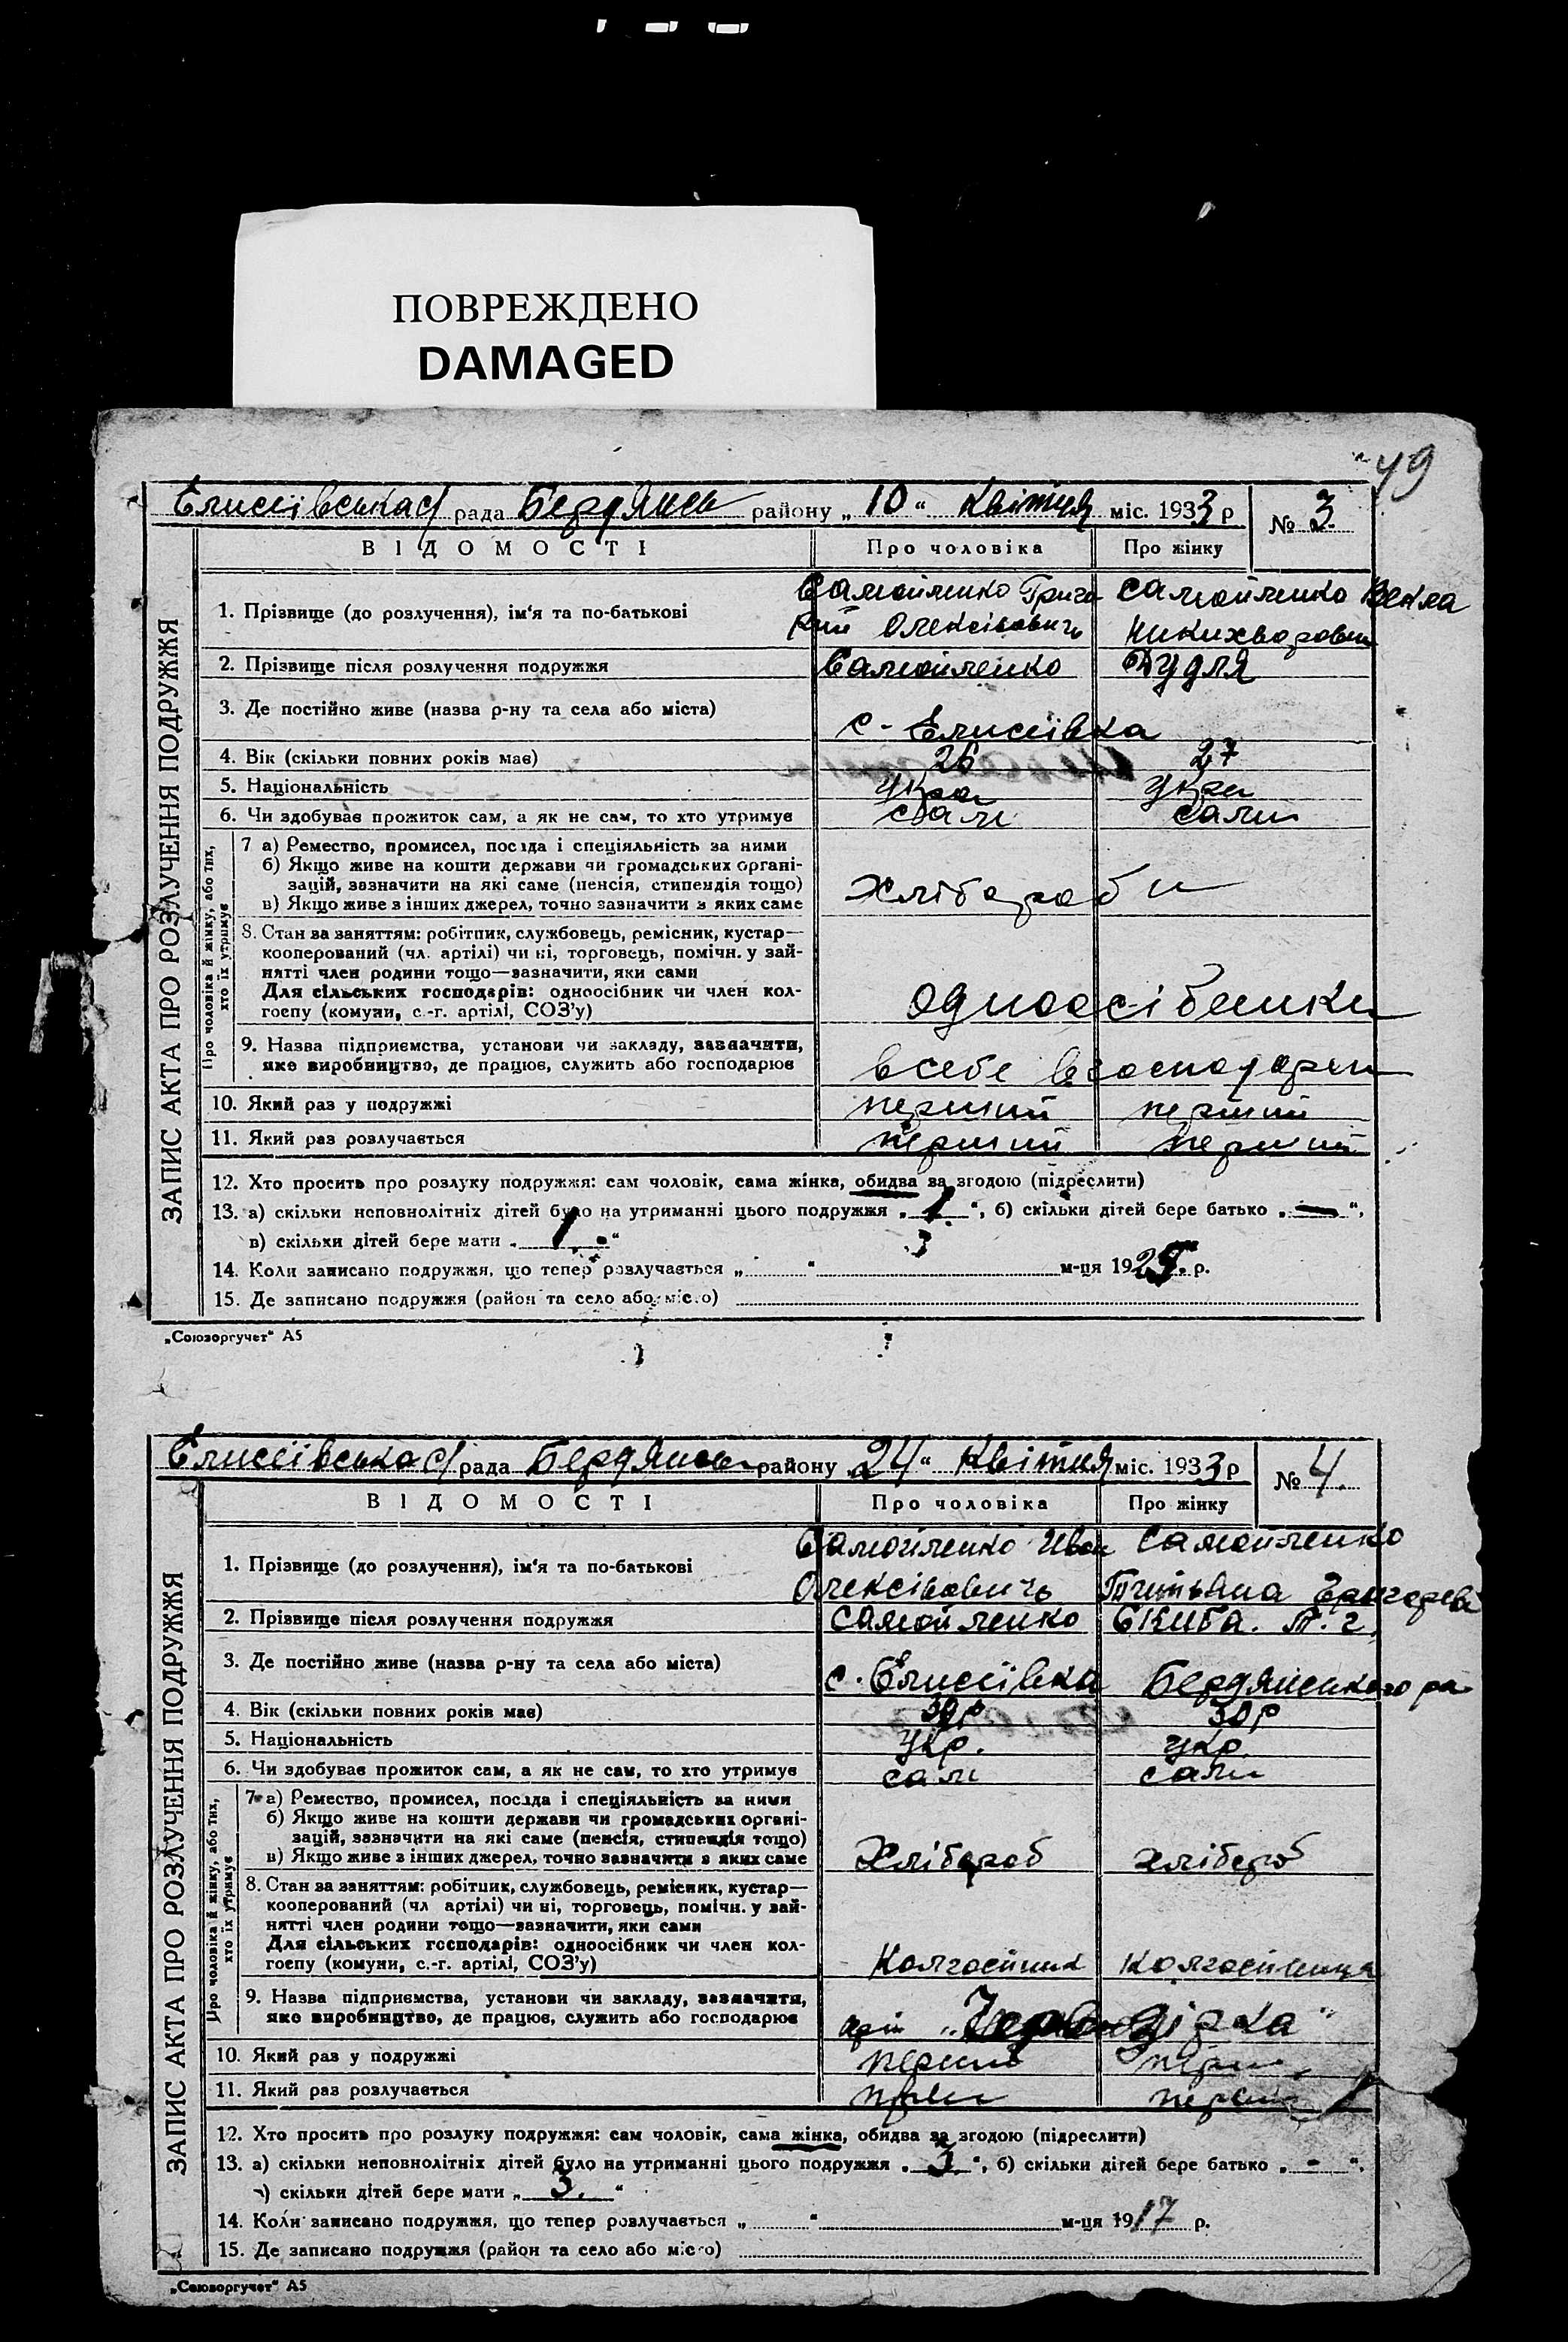 ПОВРЕЖДЕНО
DAMAGED
49
Єлисеївська рада Бердянськ району „10“ Квітня міс. 1933 р № 3
ВІДОМОСТІ Про чоловіка Про жінку
ЗАПИС АКТА ПРО РОЗЛУЧЕННЯ ПОДРУЖЖЯ
1. Прізвище (до розлучення), ім'я та по-батькові Самойленко Григо Самойленко Векла
рий Олексієвичь Никихваровна
2. Прізвище після розлучення подружжя Самойленко Дудля
3. Де постійно живе (назва р-ну та села або міста)
с-Єлисеївка
4. Вік (скільки повних років має) 26 27
5. Національність Укра Укра
6. Чи здобуває прожиток сам, а як не сам, то хто утримує сам сами
Про чоловіка й жінку, або тих,
хто їх утримує
7 а) Ремество, промисел, посада і спеціяльність за ними
б) Якщо живе на кошти держави чи громадських органі-
зацій, зазначити на які саме (пенсія, стипендія тощо)
в) Якщо живе з інших джерел, точно зазначити з яких саме Хлібороби
8. Стан за заняттям: робітник, службовець, ремісник, кустар—
кооперований (чл. артілі) чи ні, торговець, помічн. у зай-
нятті член родини тощо—зазначити, яки сами
Для сільських господарів: одноосібник чи член кол-
госпу (комуни, с.-г. артілі, СОЗ'у) одноосібники
9. Назва підприємства, установи чи закладу, зазначити,
яке виробництво, де працює, служить або господарює всебе
10. Який раз у подружжі перший перший
11. Який раз розлучається перший перший
12. Хто просить про розлуку подружжя: сам чоловік, сама жінка, обидва за згодою (підреслити)
13. а) скільки неповнолітніх дітей було на утриманні цього подружжя „1“, б) скільки дітей бере батько „—“,
в) скільки дітей бере мати „1“
14. Коли записано подружжя, що тепер розлучається „ “ м-ця 1925 р.
15. Де записано подружжя (район та село або місто)
„Союзоргучет“ А5
Єлисеївська рада Бердянськ району „24“ Квітня міс. 1933 р № 4.
ВІДОМОСТІ Про чоловіка Про жінку
ЗАПИС АКТА ПРО РОЗЛУЧЕННЯ ПОДРУЖЖЯ
1. Прізвище (до розлучення), ім'я та по-батькові Самойленко Иван Самойленко
Олексієвичь Титьяна Григорєв
2. Прізвище після розлучення подружжя Самойленко Скиба. Т. г.
3. Де постійно живе (назва р-ну та села або міста) с. Єлисеївка Бердянського ра
4. Вік (скільки повних років має) 39р 38р
5. Національність Укр. укр.
6. Чи здобуває прожиток сам, а як не сам, то хто утримує сам сами
Про чоловіка й жінку, або тих,
хто їх утримує
7 а) Ремество, промисел, посада і спеціяльність за ними
б) Якщо живе на кошти держави чи громадських органі-
зацій, зазначити на які саме (пенсія, стипендія тощо)
в) Якщо живе з інших джерел, точно зазначити з яких саме Хлібороб хлібороб
8. Стан за заняттям: робітник, службовець, ремісник, кустар—
кооперований (чл артілі) чи ні, торговець, помічн. у зай-
нятті член родини тощо—зазначити, яки сами
Для сільських господарів: одноосібник чи член кол-
госпу (комуни, с.-г. артілі, СОЗ'у) Колгоспник Колгоспниця
9. Назва підприємства, установи чи закладу, зазначити,
яке виробництво, де працює, служить або господарює
10. Який раз у подружжі перший перш
11. Який раз розлучається перший
12. Хто просить про розлуку подружжя: сам чоловік, сама жінка, обидва за згодою (підреслити)
13. а) скільки неповнолітніх дітей було на утриманні цього подружжя „3“, б) скільки дітей бере батько „-“,
в) скільки дітей бере мати „3.“
14. Коли записано подружжя, що тепер розлучається „ “ м-ця 1917 р.
15. Де записано подружжя (район та село або місто)
„Союзоргучет“ А5